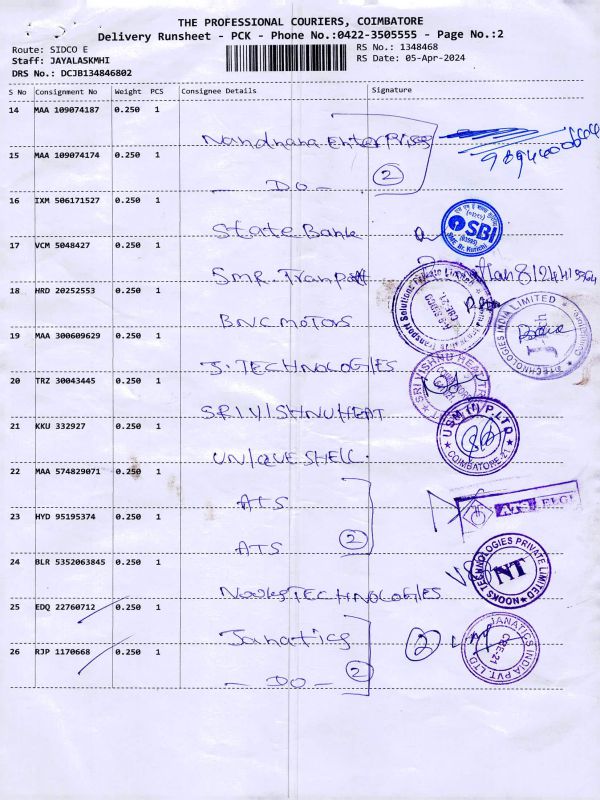 THE PROFESSIONAL COURIERS, COIMBATORE
Delivery Runsheet - PCK - Phone No.:0422-3505555 - Page No.:2
Route: SIDCO E
RS No.: 1348468
Staff: JAYALASKMHI
RS Date: 05-Apr-2024
DRS No.: DCJB134846802
S No Consignment No Weight PCS Consignee Details Signature
14 MAA 109074187 0.250 1
Nandhana Enterprises
15 MAA 109074174 0.250 1
- DO - 2
16 IXM 506171527 0.250 1
State Bank
SBI
17 VCM 5048427 0.250 1
SMR. Tranport
18 HRD 20252553 0.250 1
BNC MOTORS
19 MAA 300609629 0.250 1
J. TECHNOLOGIES
20 TRZ 30043445 0.250 1
SRI VISHNU HEAT
SRI VISHNU HEAT
21 KKU 332927 0.250 1
UNIQUE SHELL.
USM (I) P.LTD
COIMBATORE-21
22 MAA 574829071 0.250 1
ATS
23 HYD 95195374 0.250 1
ATS 2
ATS ELGI
24 BLR 5352063845 0.250 1
Nooks TECHNOLOGIES
NOOKS TECHNOLOGIES PRIVATE LIMITED
NT
25 EDQ 22760712 0.250 1
Janatics 2
26 RJP 1170668 0.250 1
- DO - 2
JANATICS INDIA PVT. LTD
CBE-21